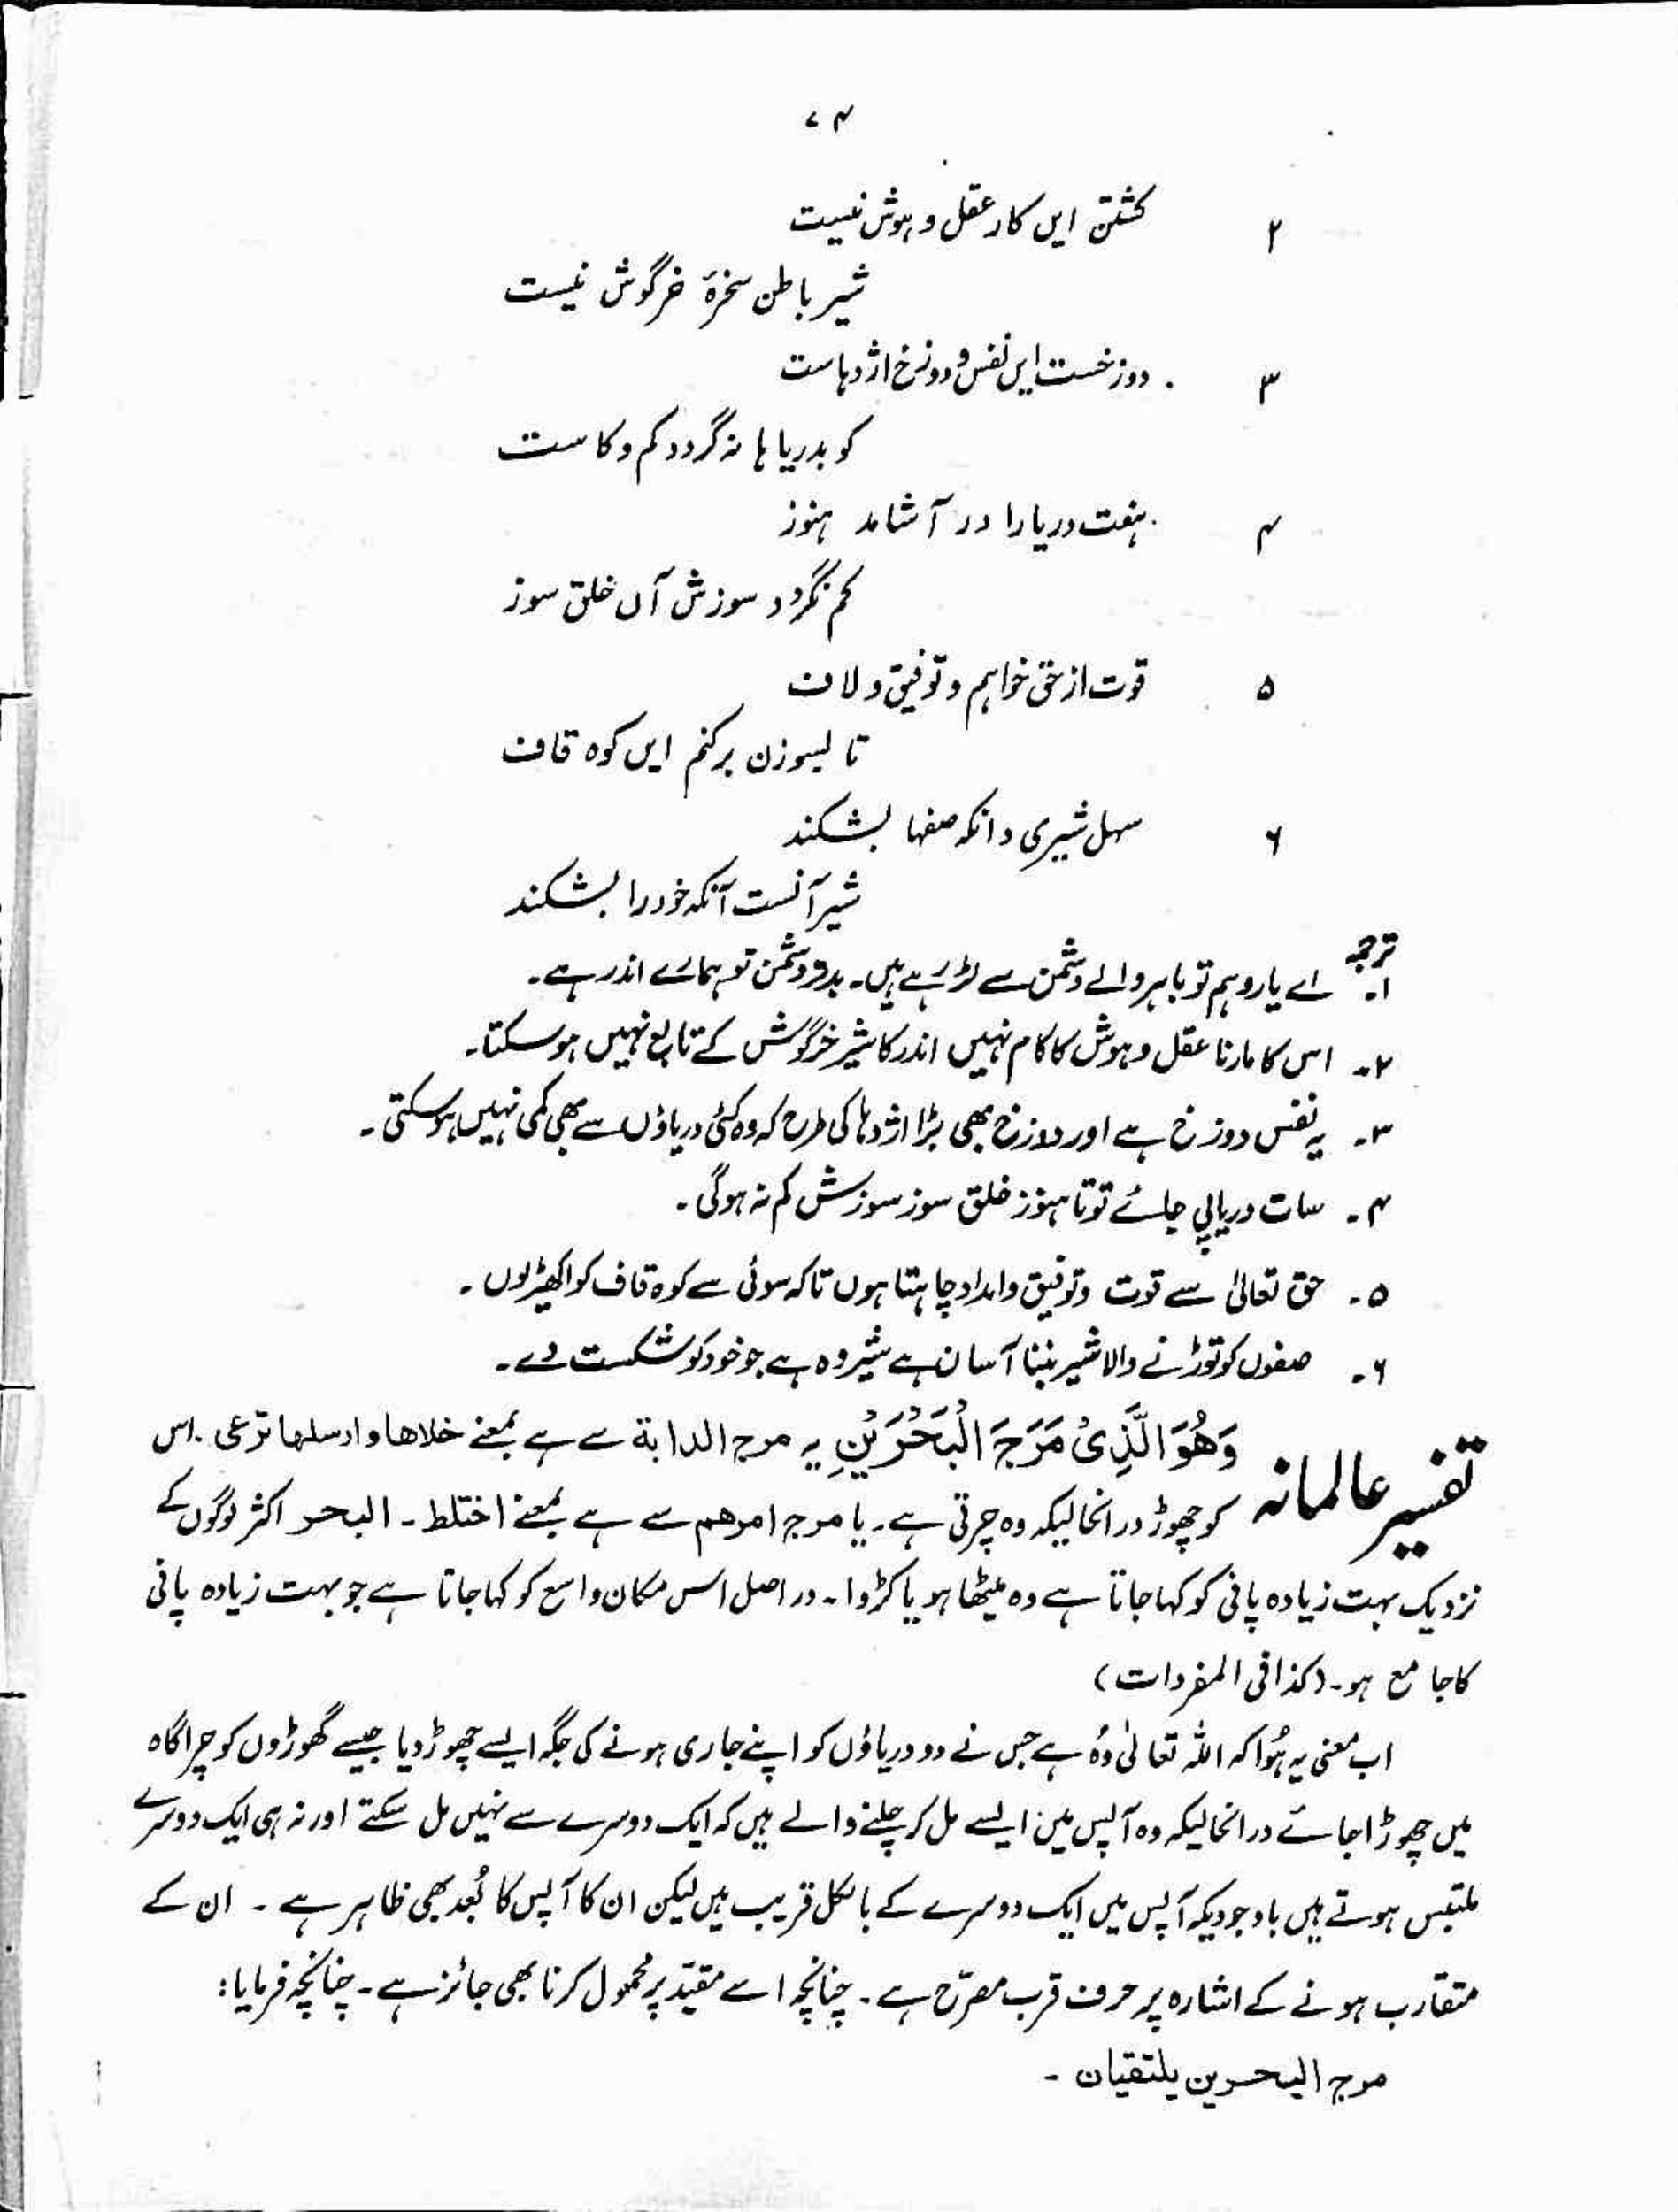 ۷۴
۲ کشتن ایں کار عقل و ہوش نیست
شیر باطن سخرۂ خرگوش نیست
۳ دوزخست ایں نفس و دوزخ اژدہاست
کو بدریا ہا نہ گردد کم و کاست
۴ ہفت دریا را در آشامد ہنوز
کم نگردد سوزش آں خلق سوز
۵ قوت از حق خواہم و توفیق و لاف
تا بسوزن برکنم ایں کوہ قاف
۶ سہل شیری دانکہ صفہا بشکند
شیر آنست آنکہ خود را بشکند
ترجمہ
۱۔ اے یارو ہم تو باہر والے دشمن سے لڑ رہے ہیں۔ بدتر دشمن تو ہمارے اندر ہے۔
۲۔ اس کا مارنا عقل و ہوش کا کام نہیں اندر کا شیر خرگوش کے تابع نہیں ہو سکتا۔
۳۔ یہ نفس دوزخ ہے اور دوزخ بھی بڑا اژدہا کی طرح کہ وہ کئی دریاؤں سے بھی کمی نہیں ہو سکتی۔
۴۔ سات دریا پی جائے تو تا ہنوز خلق سوز سوزش کم نہ ہوگی۔
۵۔ حق تعالیٰ سے قوت و توفیق و امداد چاہتا ہوں تاکہ سوئی سے کوہ قاف کو اکھیڑ لوں۔
۶۔ صفوں کو توڑنے والا شیر بننا آسان ہے شیر وہ ہے جو خود کو شکست دے۔
تفسیر عالمانہ وَھُوَ الَّذِیْ مَرَجَ الْبَحْرَیْنِ یہ مرج الدابۃ سے ہے بمعنے خلاھا و ارسلھا ترعی۔ اس
کو چھوڑ درانحالیکہ وہ چرتی ہے۔ یا مرج امرھم سے ہے بمعنے اختلط۔ البحر اکثر لوگوں کے
نزدیک بہت زیادہ پانی کو کہا جاتا ہے وہ میٹھا ہو یا کڑوا۔ در اصل اس مکان واسع کو کہا جاتا ہے جو بہت زیادہ پانی
کا جامع ہو۔ (کذا فی المفردات)
اب معنی یہ ہُوا کہ اللہ تعالیٰ وُہ ہے جس نے دو دریاؤں کو اپنے جاری ہونے کی جگہ ایسے چھوڑ دیا جیسے گھوڑوں کو چراگاہ
میں چھوڑا جائے درانحالیکہ وہ آپس میں ایسے مل کر چلنے والے ہیں کہ ایک دوسرے سے نہیں مل سکتے اور نہ ہی ایک دوسرے
ملتبس ہوتے ہیں باوجودیکہ آپس میں ایک دوسرے کے بالکل قریب ہیں لیکن ان کا آپس کا بُعد بھی ظاہر ہے ۔ ان کے
متقارب ہونے کے اشارہ پر حرف قرب مصرّح ہے۔ چنانچہ اسے مقیّد پر محمول کرنا بھی جائز ہے۔ چنانچہ فرمایا:
مرج البحرین یلتقیان ۔